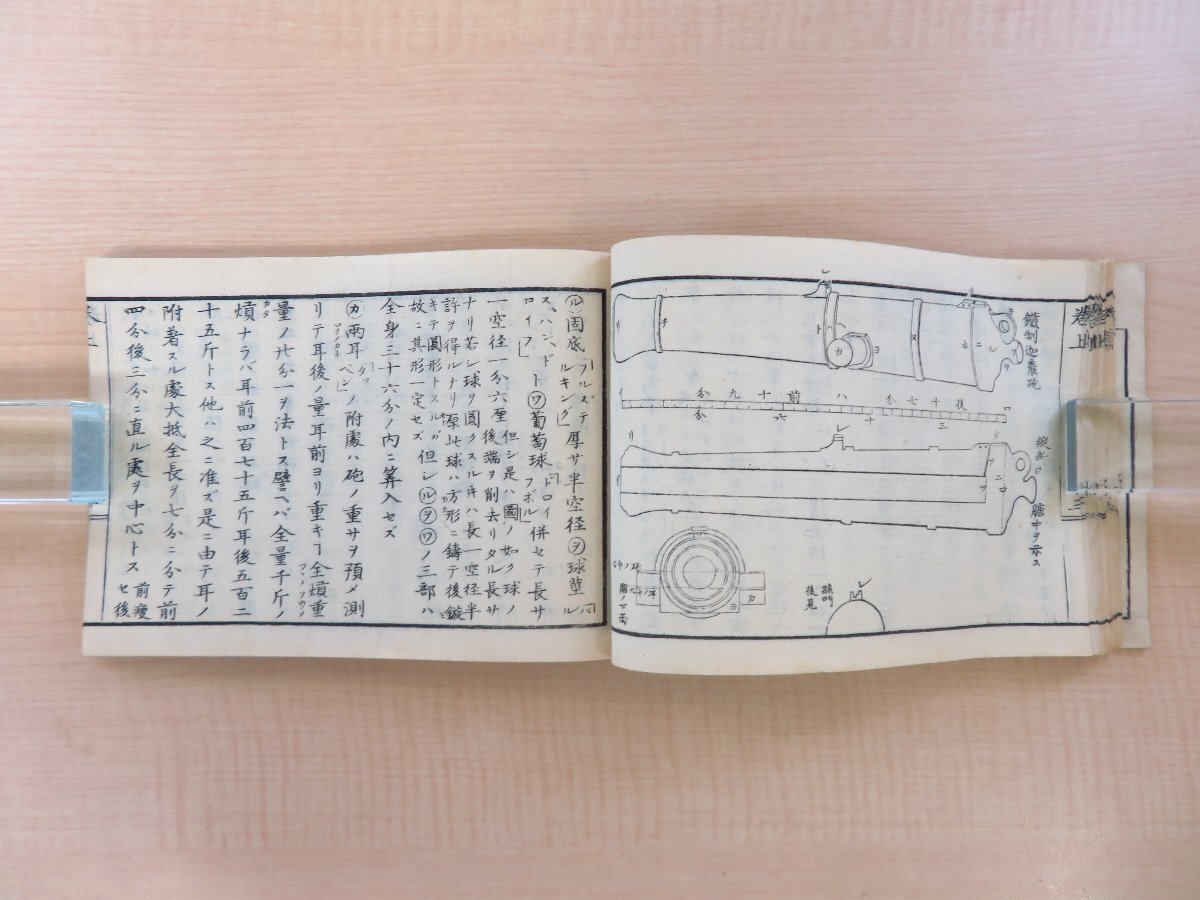 鐵制迦農砲
膅中ヲ示ス
後十七分
八
前十九分
三
十
六分
照門後見
耳ノ下面
巻上
㋸固底「フルステルキング」厚サ半空径㋾球莖「ドロイフ
スハンド」ト㋻葡萄球「ドロイフボル」併セテ長サ
一空径一分六厘但シ是ハ圖ノ如ク球ノ後端ヲ削去リタル長サ
ナリ若シ球ヲ圓クスル𪜈ハ長一空径半
許ヲ得ルナリ原此球ハ方形ニ鋳テ後鏇
キテ圓形トスルガ故ニ其形一定セズ但シ㋸㋾㋻ノ三部ハ
全身三十六分ノ内ニ算入セズ
㋕兩耳「タッペン」ノ附處ハ砲ノ重サヲ預メ測
リテ耳後ノ量耳前ヨリ重キヿ全熕重
量ノ廿分一ヲ法トス譬ヘバ全量千斤ノ
熕ナラバ耳前四百七十五斤耳後五百二
十五斤トス他ハ之ニ准ズ是ニ由テ耳ノ
附着スル處大抵全長ヲ七分ニ分テ前
四分後三分ニ直ル處ヲ中心トス